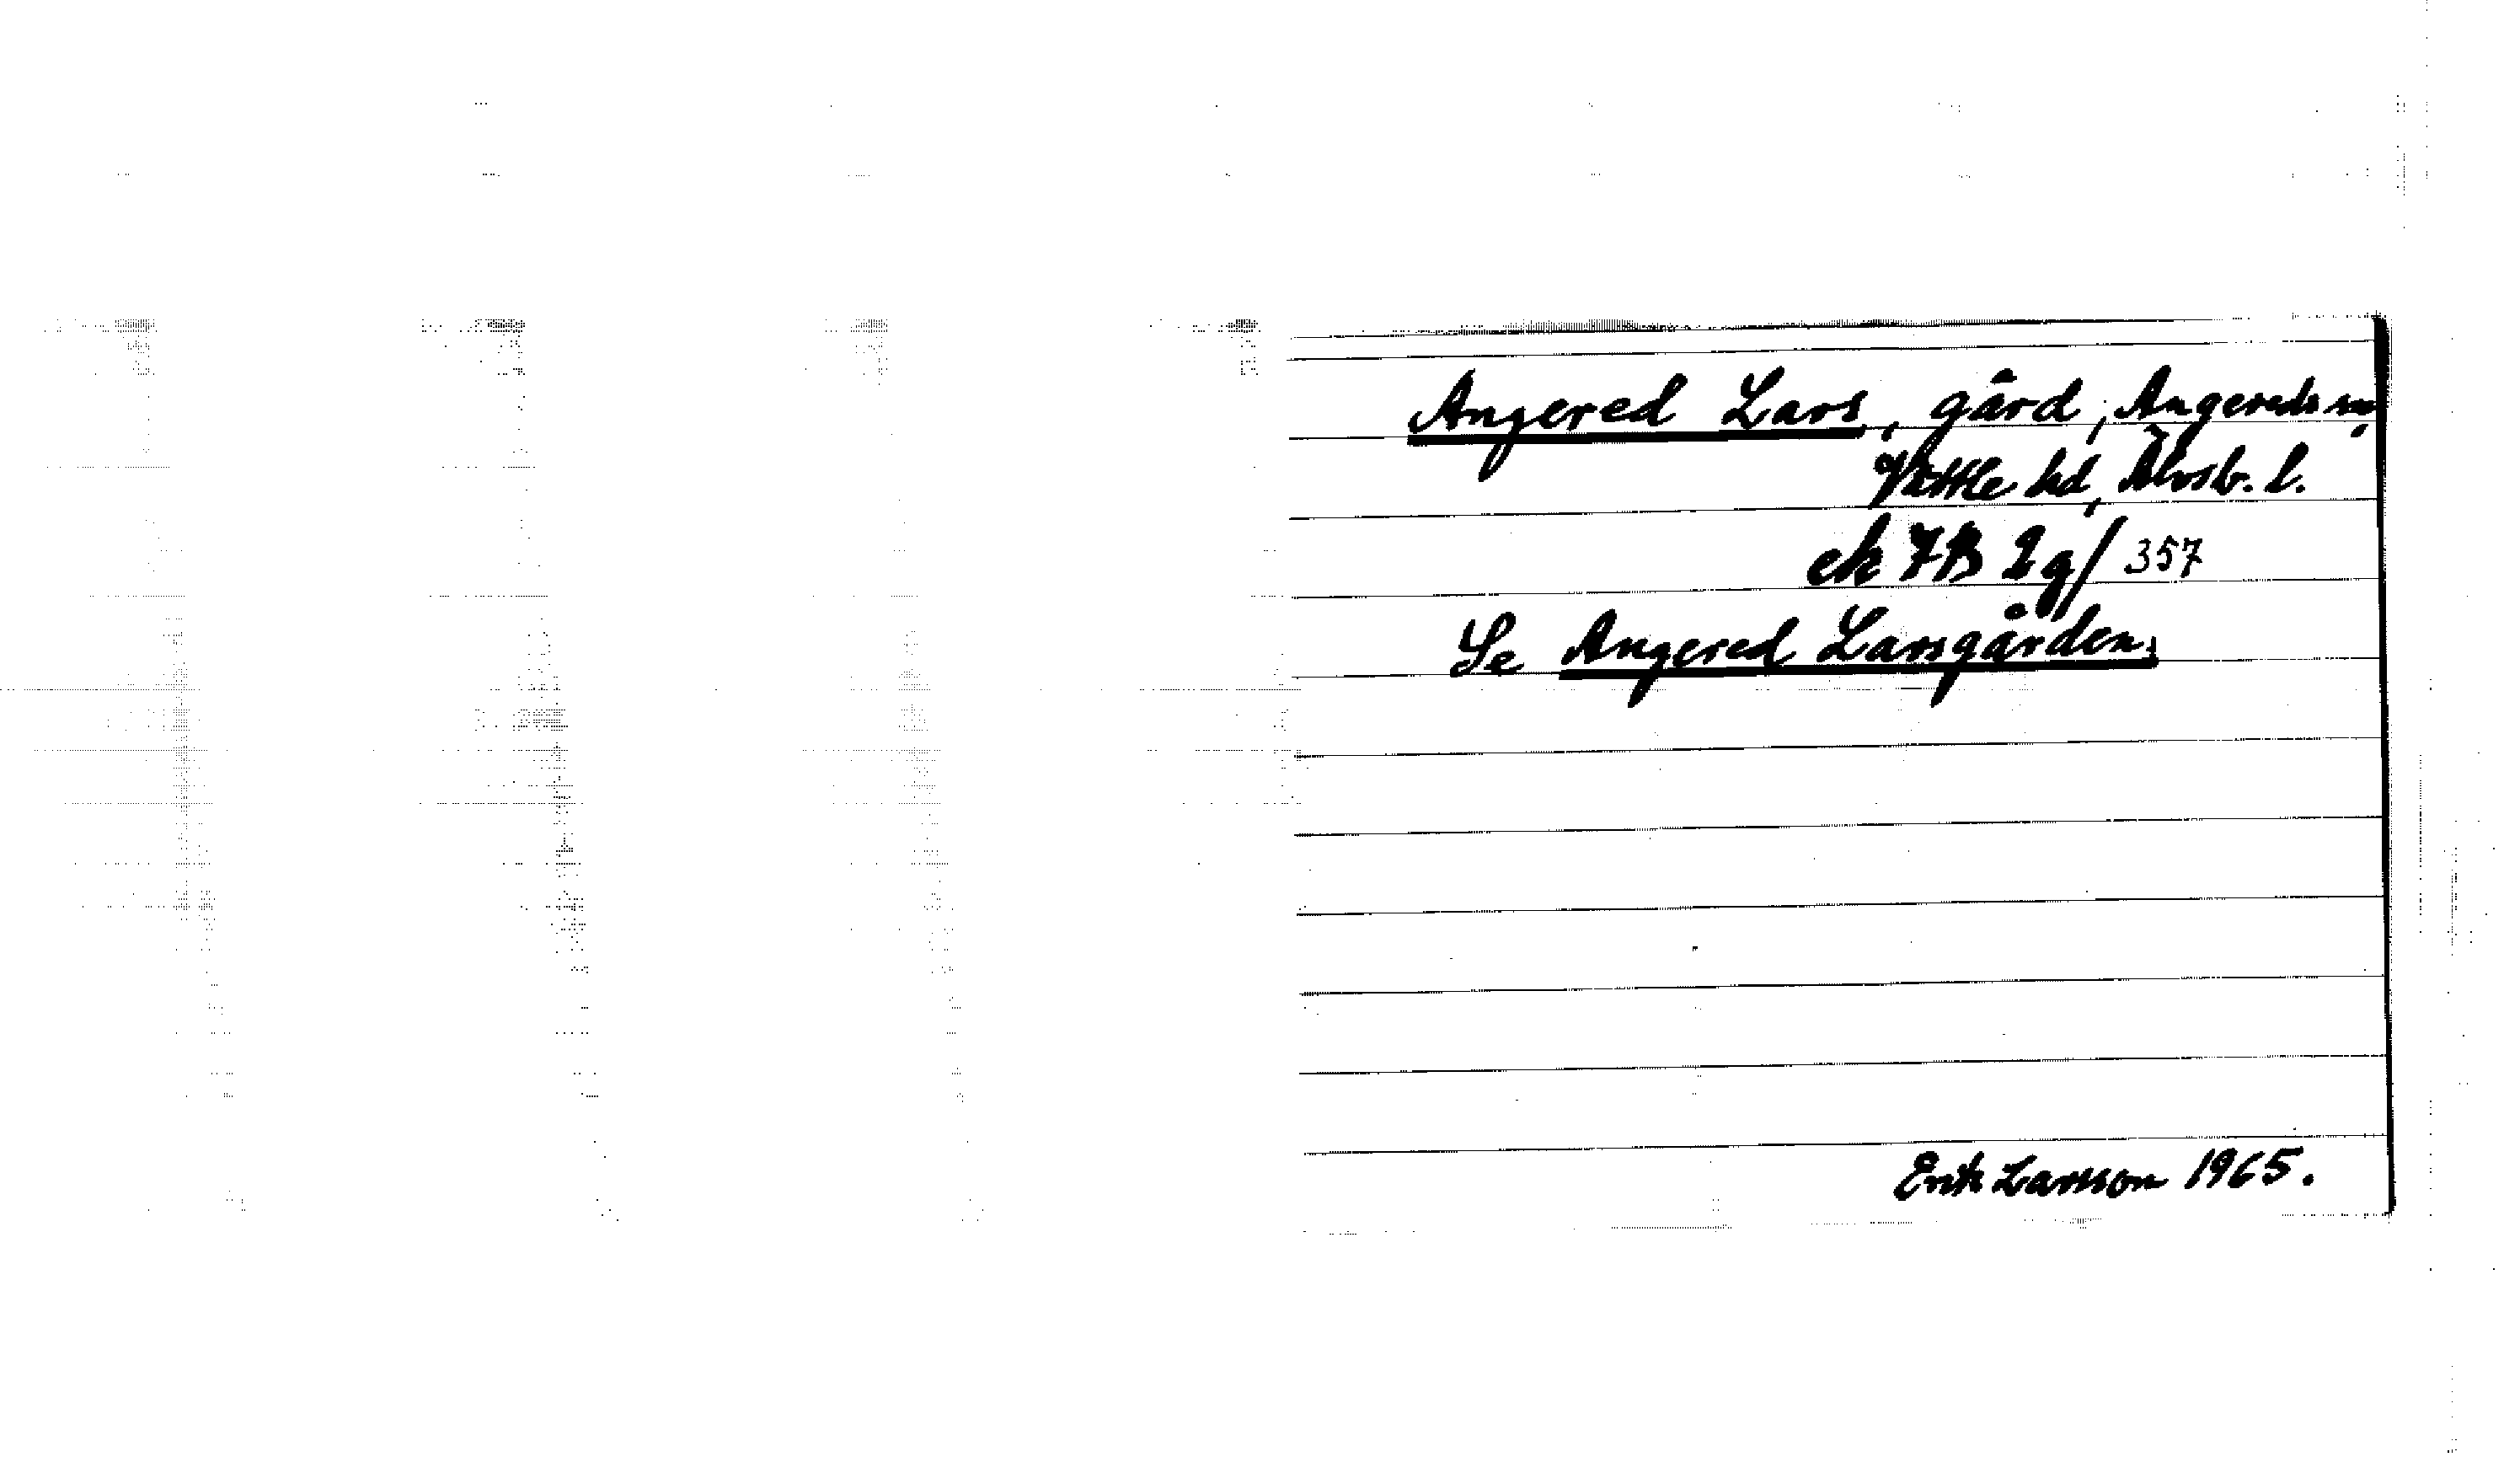 Angered Lars, gård, Angereds sn,
Vättle hd, Älvsb. l.
ek 7B 2g/357
Se Angered Larsgården.
Erik Larsson 1965.